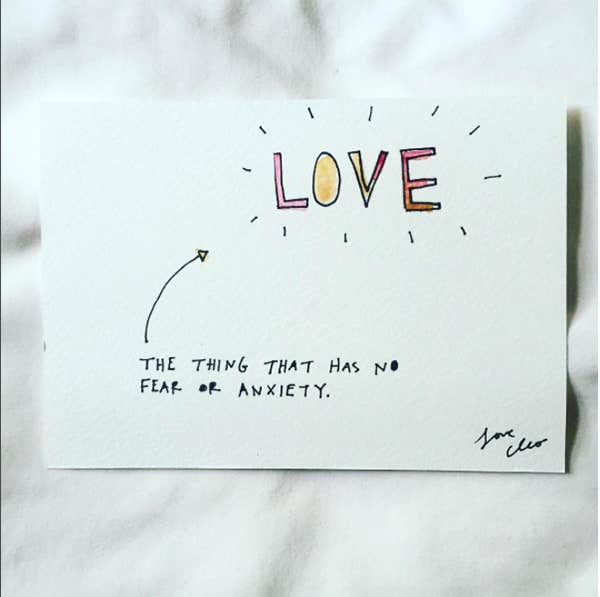 LOVE
THE THING THAT HAS NO
FEAR OR ANXIETY.
love
cleo